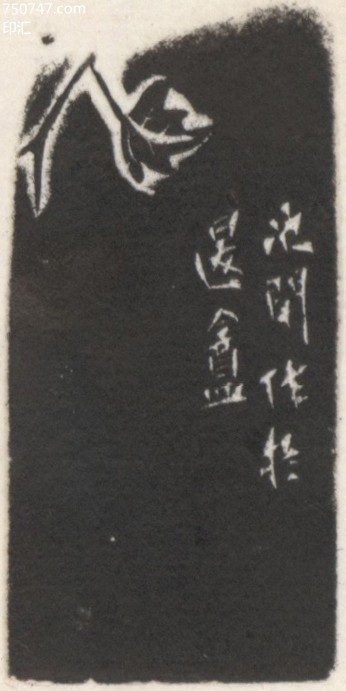 750747.com
印汇
次閒作於
退盦